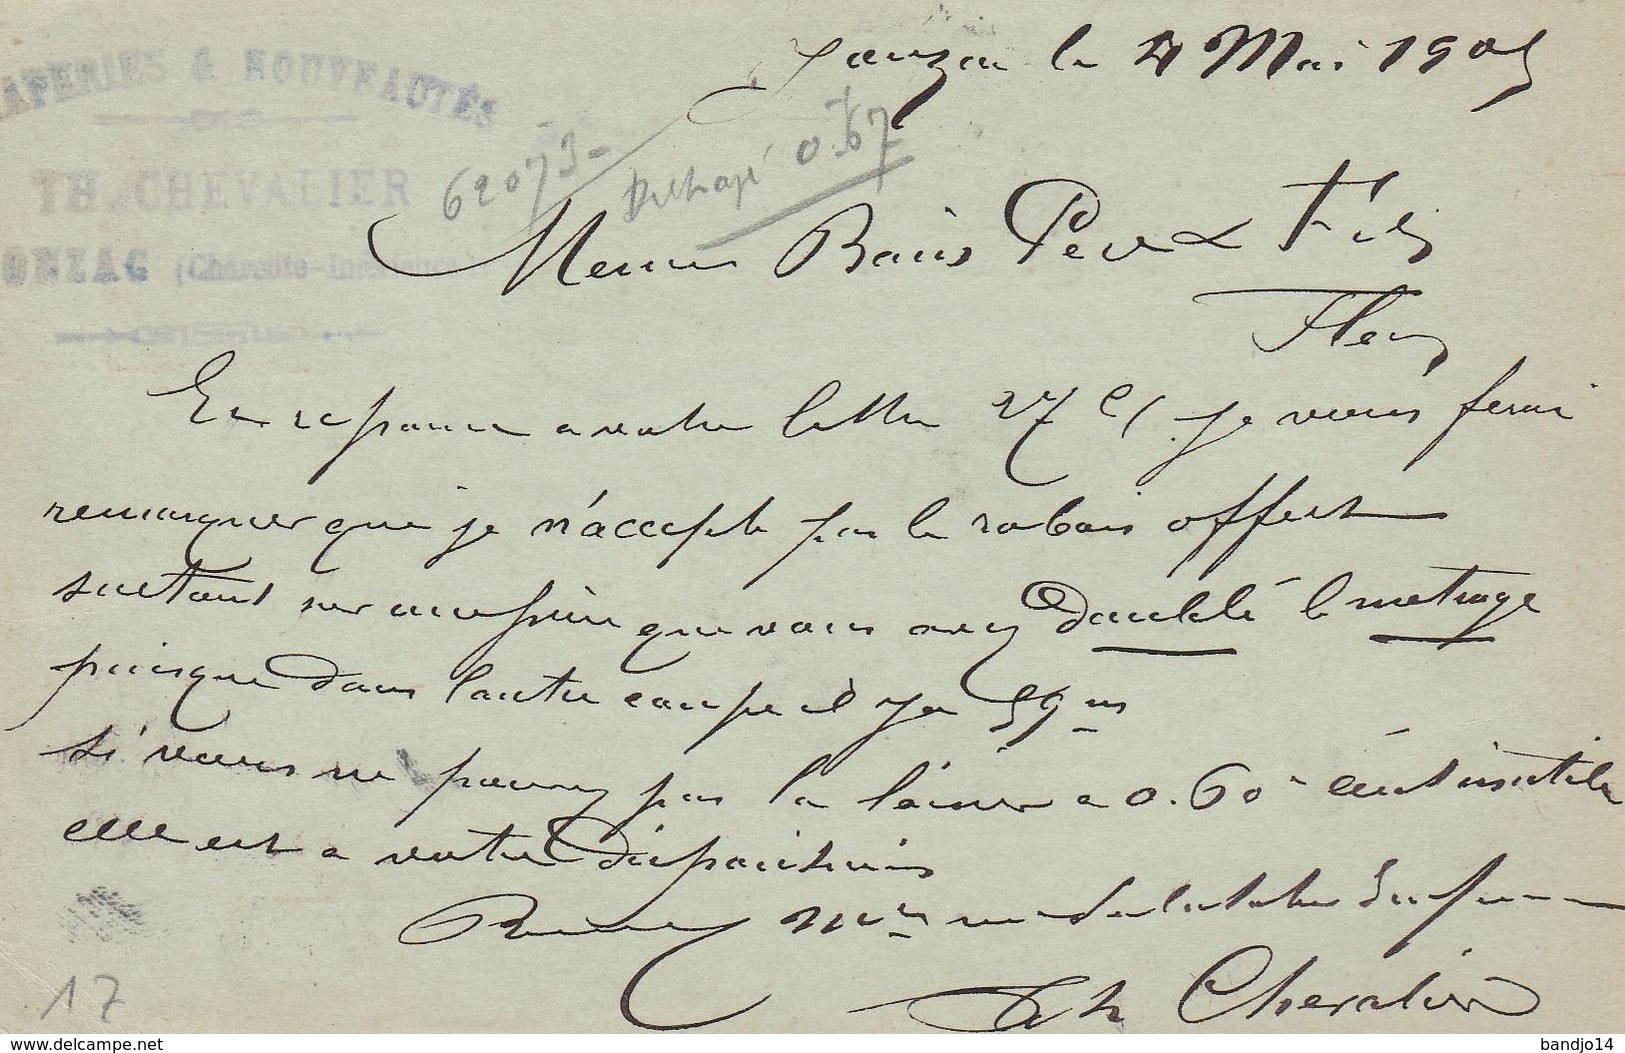 APERIES & NOUVEAUTÉS
TH. CHEVALIER
ONZAC (Charente-Inférieure)
Jonzac le 4 Mai 1905
62073
0.67
Messieurs Père & Fils
Flers
En reponse a votre lettre 27 Ct je vous ferai
remarquer que je n'accepte pas le rabais offert
surtout sur une pièce que vous avez doublé le métrage
puisque dans l'autre coupe il y a 59 m
si vous ne pouvez pas la laisser a 0.60 - inutile
elle est a votre disposition
Recevez Mrs mes salutations
Th Chevalier
17
delcampe.net
bandjo14